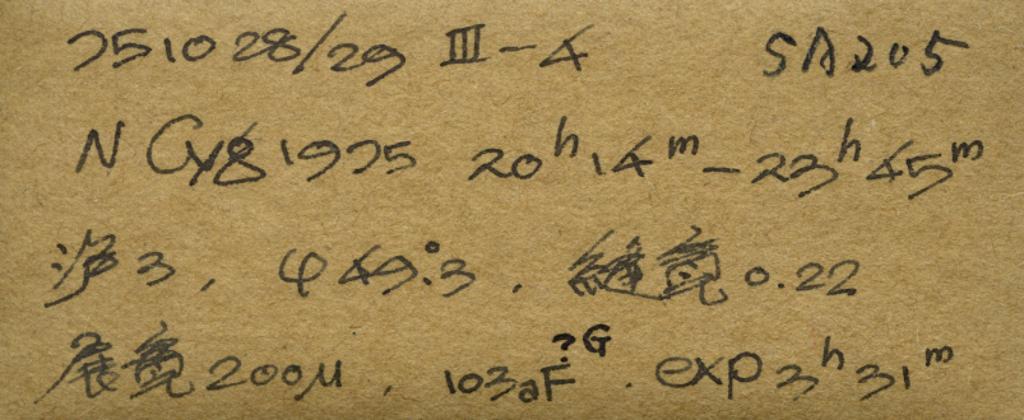 751028/29 III-4 SA205
N Cyg 1975 20ʰ14ᵐ-23ʰ45ᵐ
沪3, φ49°.3, 縫寬0.22
展寬200μ, 103aF ?G. exp 3ʰ31ᵐ